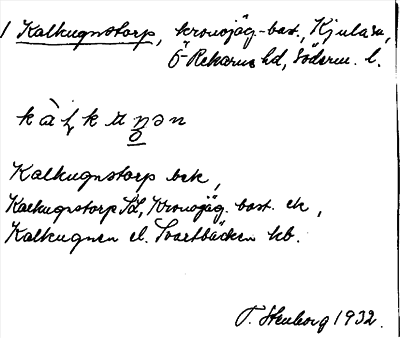 1 Kalkugnstorp, kronojäg.-bost., Kjula sn,
Ö-Rekarne hd, Söderm. l.
Kalkugnstorp bek,
Kalkugnstorp Sä, Kronojäg. bost. ek,
Kalkugnen el. Svartbäcken kb.
T. Stenborg 1932.